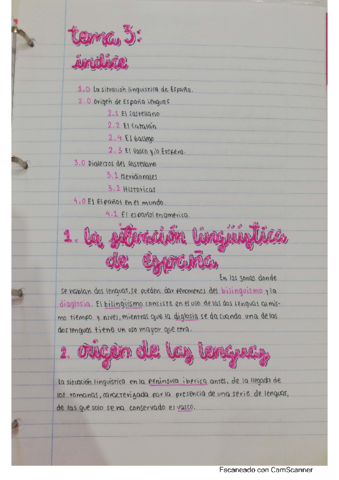 tema 3:
índice
1.0 La situación lingüística de España.
2.0 Origen de España lenguas
2.1 El castellano
2.2 El Catalán
2.4 El
2.3 El Vasco y/o Euskera.
3.0 Dialectos del castellano
3.1 Meridionales
3.2 Históricas
4.0 El Español en el mundo
4.1. El español en america.
1. La situación lingüística
de españa
En las zonas donde
se hablan dos lenguas, se pueden dar fenomenos del bilinguismo y la
diaglosia. El bilinguismo consiste en el uso de las dos lenguas al mis-
mo tiempo y nivel, mientras que la diglosia se da cuando una de las
dos lenguas tiene un uso mayor que otra.
2. origen de las lenguas
La situación lingüística en la península iberica antes, de la llegada de
los romanos, caracterizada por la presencia de una serie de lenguas,
de las que solo se ha conservado el vasco.
Escaneado con CamScanner